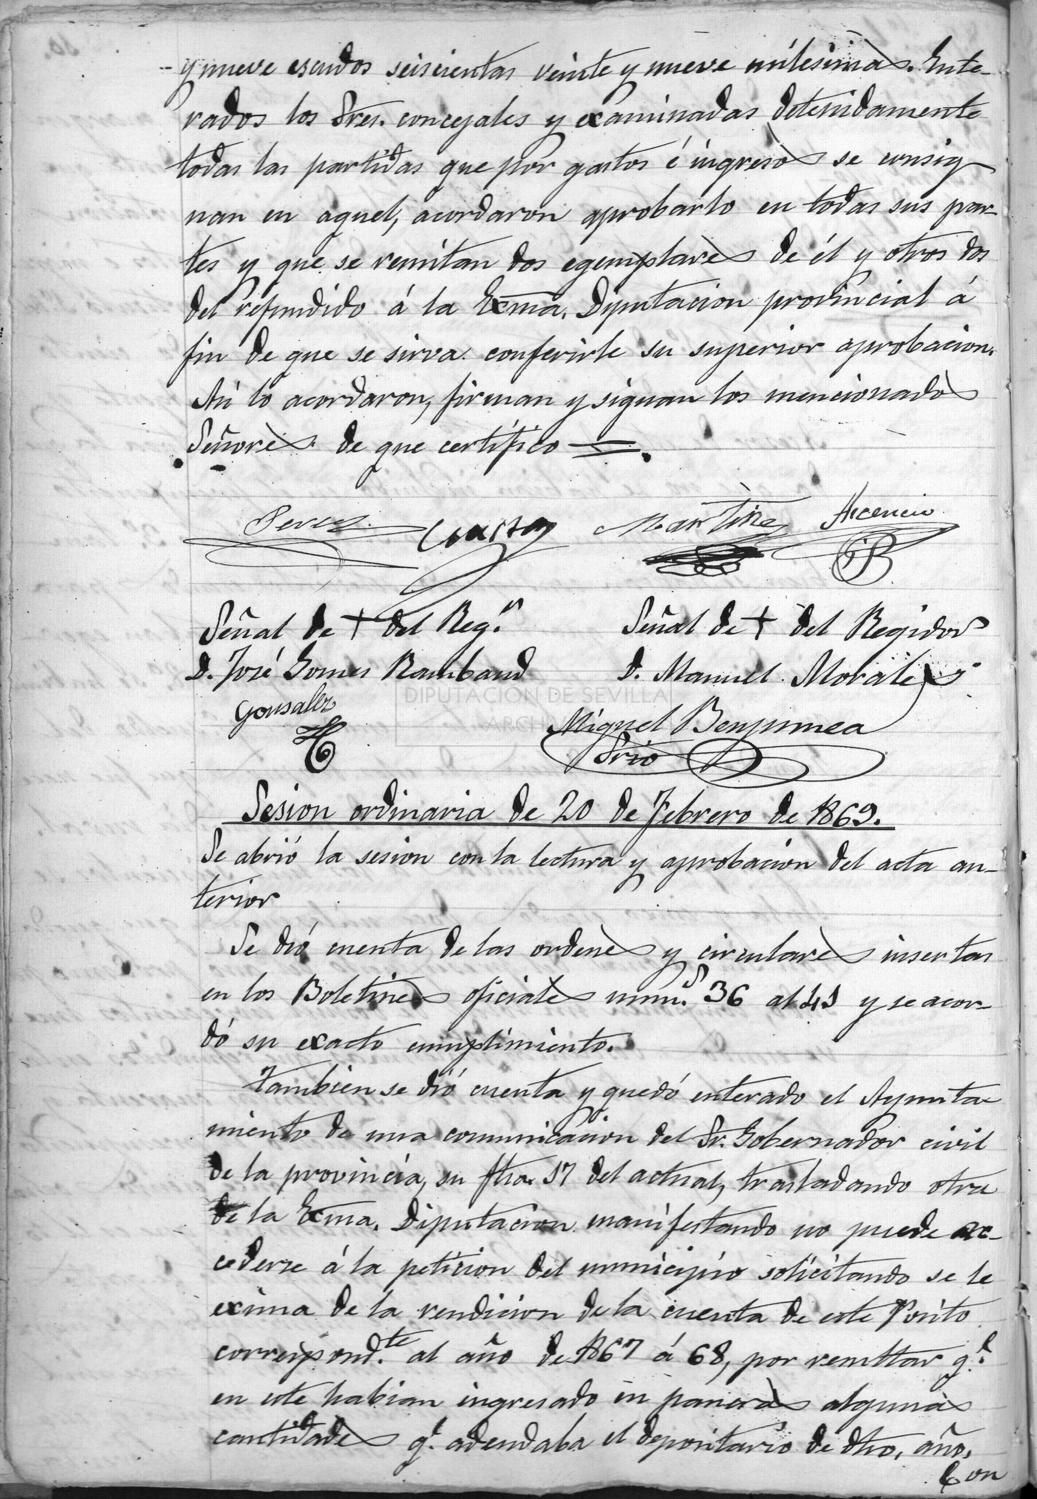 y nueve escudos seiscientas veinte y nueve milesimas. Ente-
rados los Sres. concejales y examinadas detenidamente
todas las partidas que por gastos é ingresos se consig
nan en aquel, acordaron aprobarlo en todas sus par-
tes y que se remitan dos egemplares de él y otros dos
del refundido á la Exma. Diputacion provincial á
fin de que se sirva conferirle su superior aprobacion.
Asi lo acordaron, firman y signan los mencionados
Señores de que certifico =
Perez Martinez Ascencio
Señal de + del Reg.or Señal de + del Regidor
D. José Gomez Rambaud D. Manuel Morales
Gonzalez
DIPUTACIÓN DE SEVILLA
ARCHIVO
Miguel Benjumea
Srio
Sesion ordinaria de 20 de Febrero de 1869.
Se abrió la sesion con la lectura y aprobacion del acta an-
terior
Se dió cuenta de las ordenes y circulares insertas
en los Boletines oficiales num.s 36 al 41 y se acor-
dó su exacto cumplimiento.
Tambien se dió cuenta y quedó enterado el Ayunta
miento de una comunicacion del Sr. Gobernador civil
de la provincia, su fha. 17 del actual, trasladando otra
de la Exma. Diputacion manifestando no puede ac-
cederse á la peticion del municipio solicitando se le
exima de la rendicion de la cuenta de este Posito
correspond.te al año de 1867 á 68, por resultar q.e
en este habian ingresado en paneras algunas
cantidades q.e adeudaba el depositario de dho. año.
Con